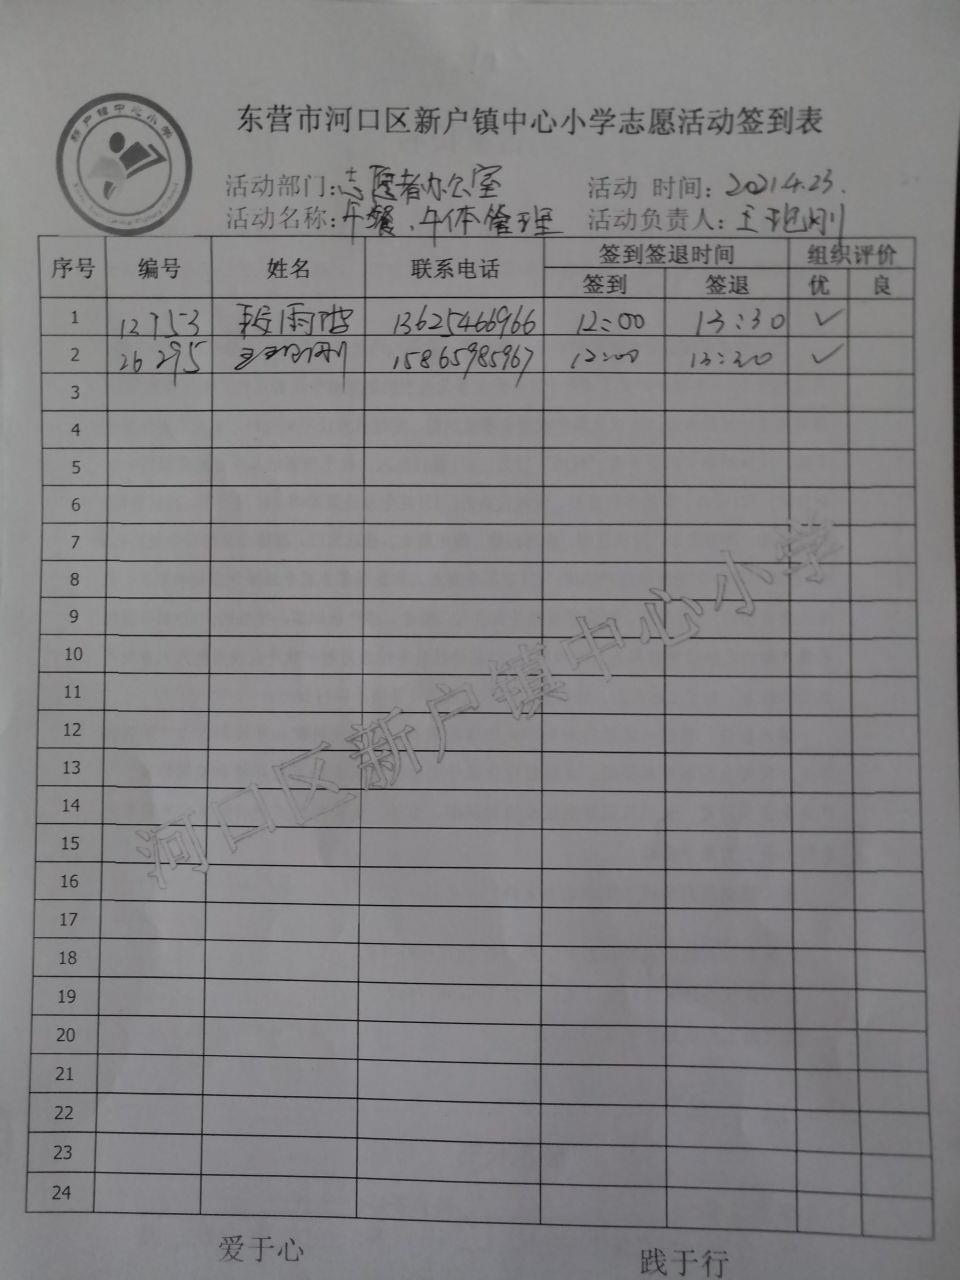 新户镇中心小学
东营市河口区新户镇中心小学志愿活动签到表
活动部门:志愿者办公室 活动 时间: 2021.4.23.
活动名称:午餐、午休管理 活动负责人:王刚
序号 编号 姓名 联系电话 签到签退时间 组织评价
签到 签退 优 良
1 12753 雨 13625466966 12:00 13:30 ✓
2 26295 王刚 15865985967 12:00 13:30 ✓
3
4
5
6
7
8
9
10
11
12
13
14
15
16
17
18
19
20
21
22
23
24
河口区新户镇中心小学
爱于心 践于行